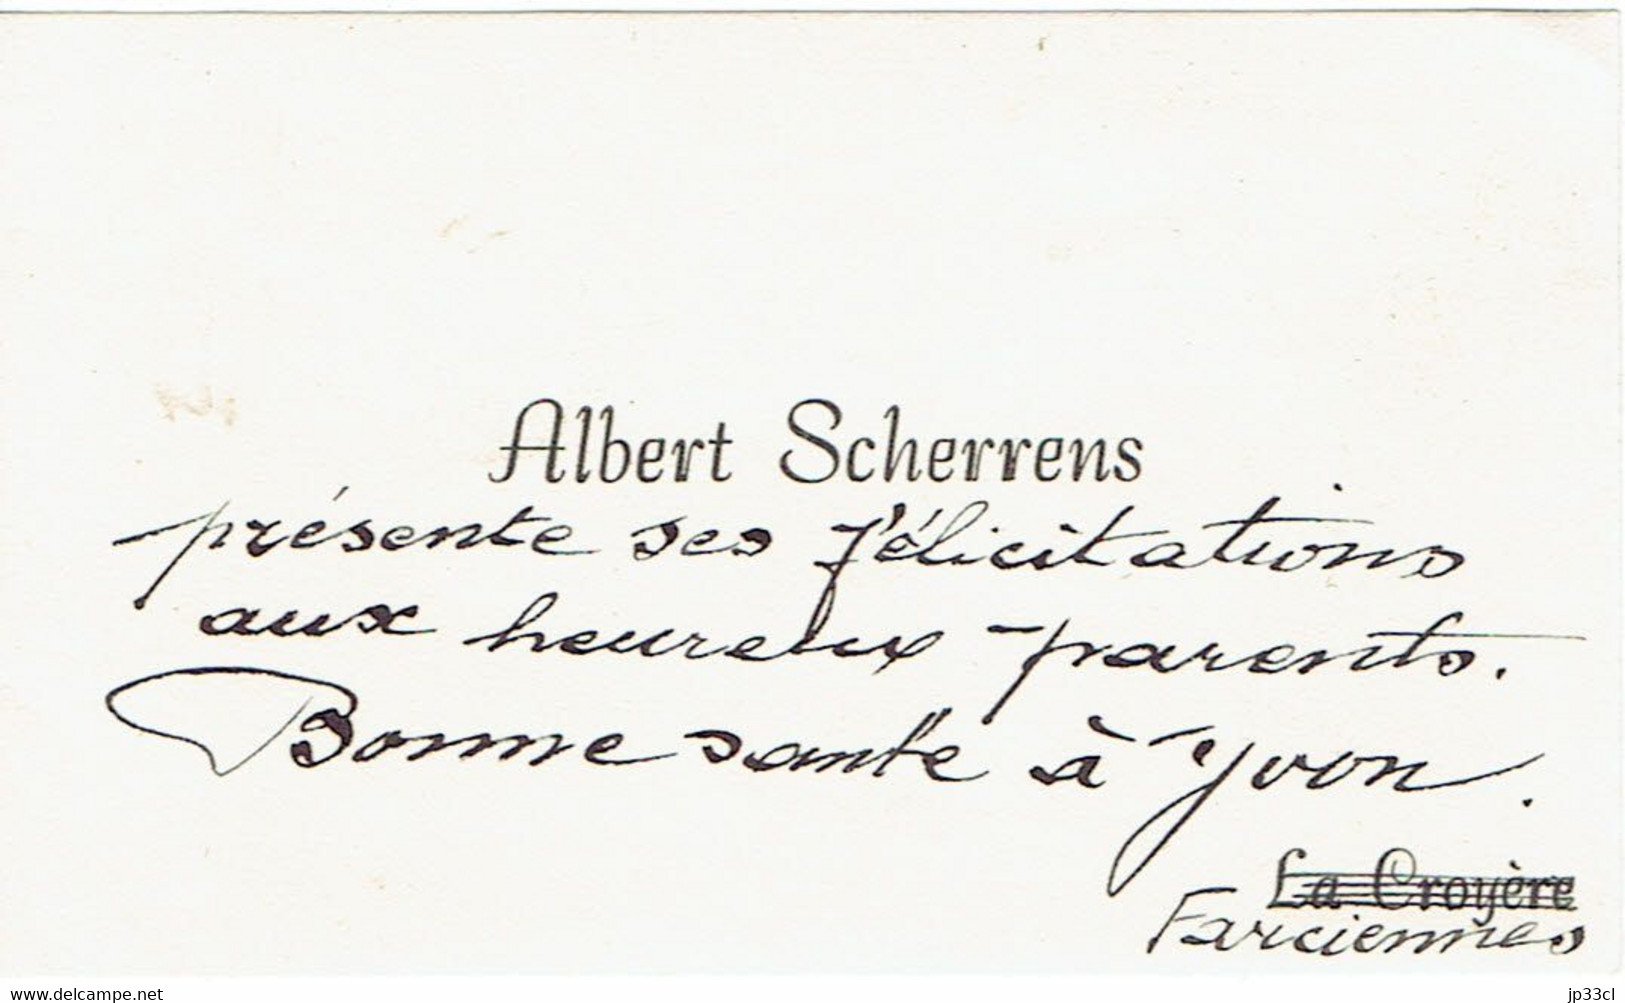 Albert Scherrens
présente ses félicitations
aux heureux parents.
Bonne santé à Yvon.
La Croyère
Farciennes
www.delcampe.net
jp33cl